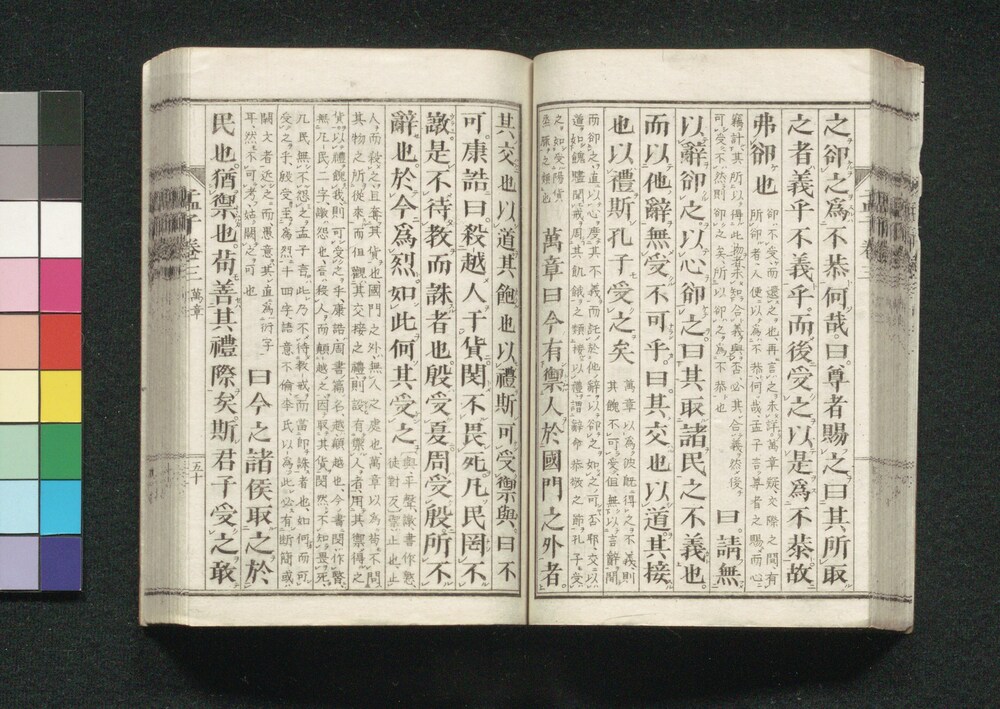 之卻之爲不恭何哉曰尊者賜之曰其所取
之者義乎不義乎而後受之以是爲不恭故
弗卻也
卻不受而還之也再言之未詳萬章疑交際之間有
所卻者人便以爲不恭何哉孟子言尊者之賜而心
竊計其所以得此物者未知合義與否必其合義然後
可受不然則卻之矣所以卻之爲不恭也
曰請無
以辭卻之以心卻之曰其取諸民之不義也
而以他辭無受不可乎曰其交也以道其接
也以禮斯孔子受之矣
萬章以爲彼旣得之不義則
其餽不可受但無以言辭間
而卻之直以心度其不義而託於他辭以卻之如此可否耶交以
道如餽贐聞戒周其飢餓之類接以禮謂辭命恭敬之節孔子受
之如受陽貨
烝豚之類也
萬章曰今有禦人於國門之外者
孟子 卷三
其交也以道其餽也以禮斯可受禦與曰不
可康誥曰殺越人于貨閔不畏死凡民罔不
譈是不待教而誅者也殷受夏周受殷所不
辭也於今爲烈如之何其受之
與平聲譈書作憝
徒對反禦止也止
人而殺之且奪其貨也國門之外無人之處也萬章以爲苟不問
其物之所從來而但觀其交接之禮則設有禦人者用其禦得之
貨以禮餽我則可受之乎康誥周書篇名越顚越也今書閔作暋
無凡民二字譈怨也言殺人而顚越之因取其貨閔然不知畏死
凡民無不怨之孟子言此乃不待教戒而當卽誅者也如何而可
受之乎殷受至爲烈十四字語意不倫李氏以爲此必有斷簡或
闕文者近之而愚意其直爲衍字
耳然不可考姑闕之可也
曰今之諸侯取之於
民也猶禦也苟善其禮際矣斯君子受之敢
孟子 卷三 萬章 五十